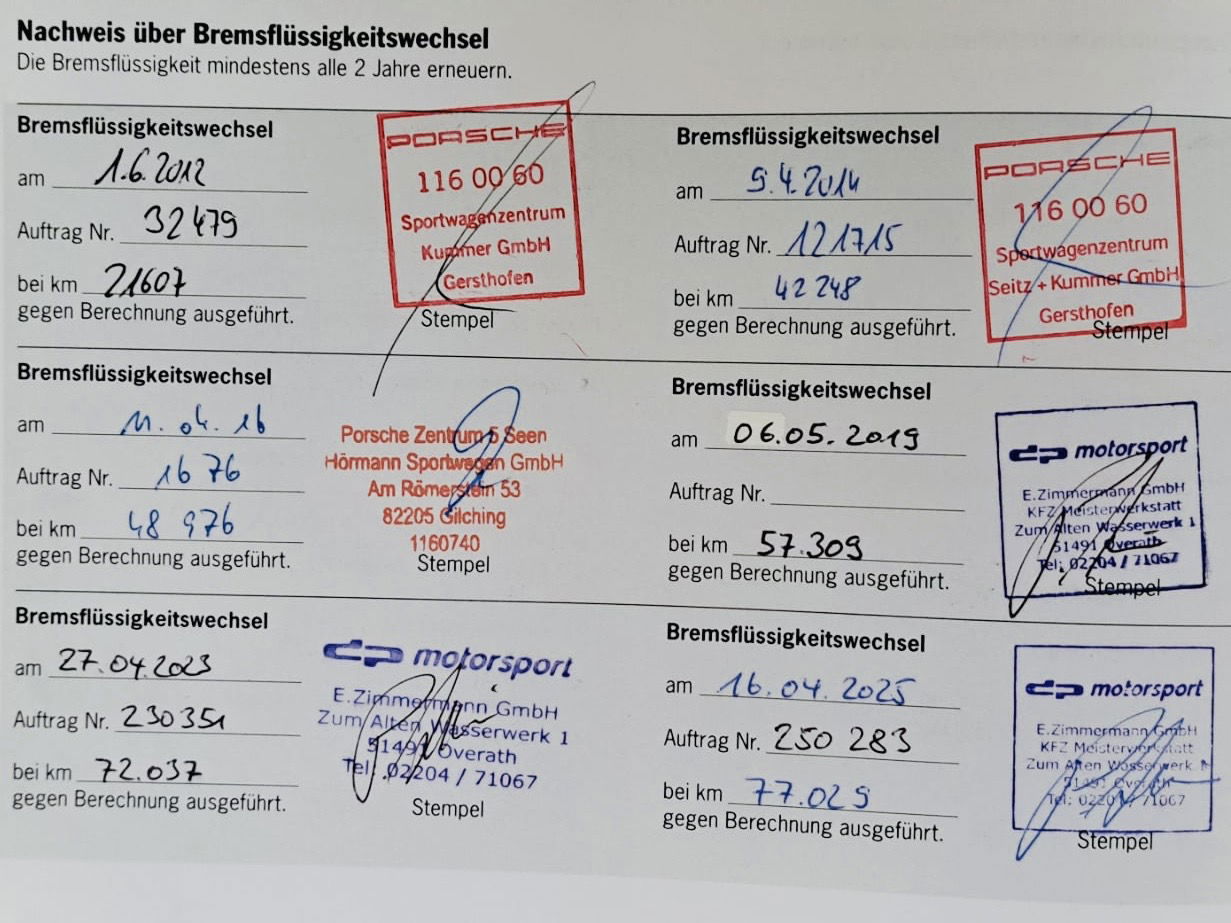 Nachweis über Bremsflüssigkeitswechsel
Die Bremsflüssigkeit mindestens alle 2 Jahre erneuern.
Bremsflüssigkeitswechsel
am 1.6.2012
Auftrag Nr. 32479
bei km 21607
gegen Berechnung ausgeführt.
PORSCHE
116 00 60
Sportwagenzentrum
Kummer GmbH
Gersthofen
Stempel
Bremsflüssigkeitswechsel
am 9.4.2014
Auftrag Nr. 121715
bei km 42 248
gegen Berechnung ausgeführt.
PORSCHE
116 00 60
Sportwagenzentrum
Seitz + Kummer GmbH
Gersthofen
Stempel
Bremsflüssigkeitswechsel
am 11. 04. 16
Auftrag Nr. 16 76
bei km 48 976
gegen Berechnung ausgeführt.
Porsche Zentrum 5 Seen
Hörmann Sportwagen GmbH
Am Römerstein 53
82205 Gilching
1160740
Stempel
Bremsflüssigkeitswechsel
am 06.05.2019
Auftrag Nr.
bei km 57.309
gegen Berechnung ausgeführt.
dp motorsport
E.Zimmermann GmbH
KFZ Meisterwerkstatt
Zum Alten Wasserwerk 1
51491 Overath
Tel: 02204 / 71067
Stempel
Bremsflüssigkeitswechsel
am 27.04.2023
Auftrag Nr. 230351
bei km 72.037
gegen Berechnung ausgeführt.
dp motorsport
E.Zimmermann GmbH
Zum Alten Wasserwerk 1
51491 Overath
Tel. 02204 / 71067
Stempel
Bremsflüssigkeitswechsel
am 16.04.2025
Auftrag Nr. 250 283
bei km 77.029
gegen Berechnung ausgeführt.
dp motorsport
E.Zimmermann GmbH
KFZ Meisterwerkstatt
Zum Alten Wasserwerk 1
51491 Overath
Tel: 02204 / 71067
Stempel